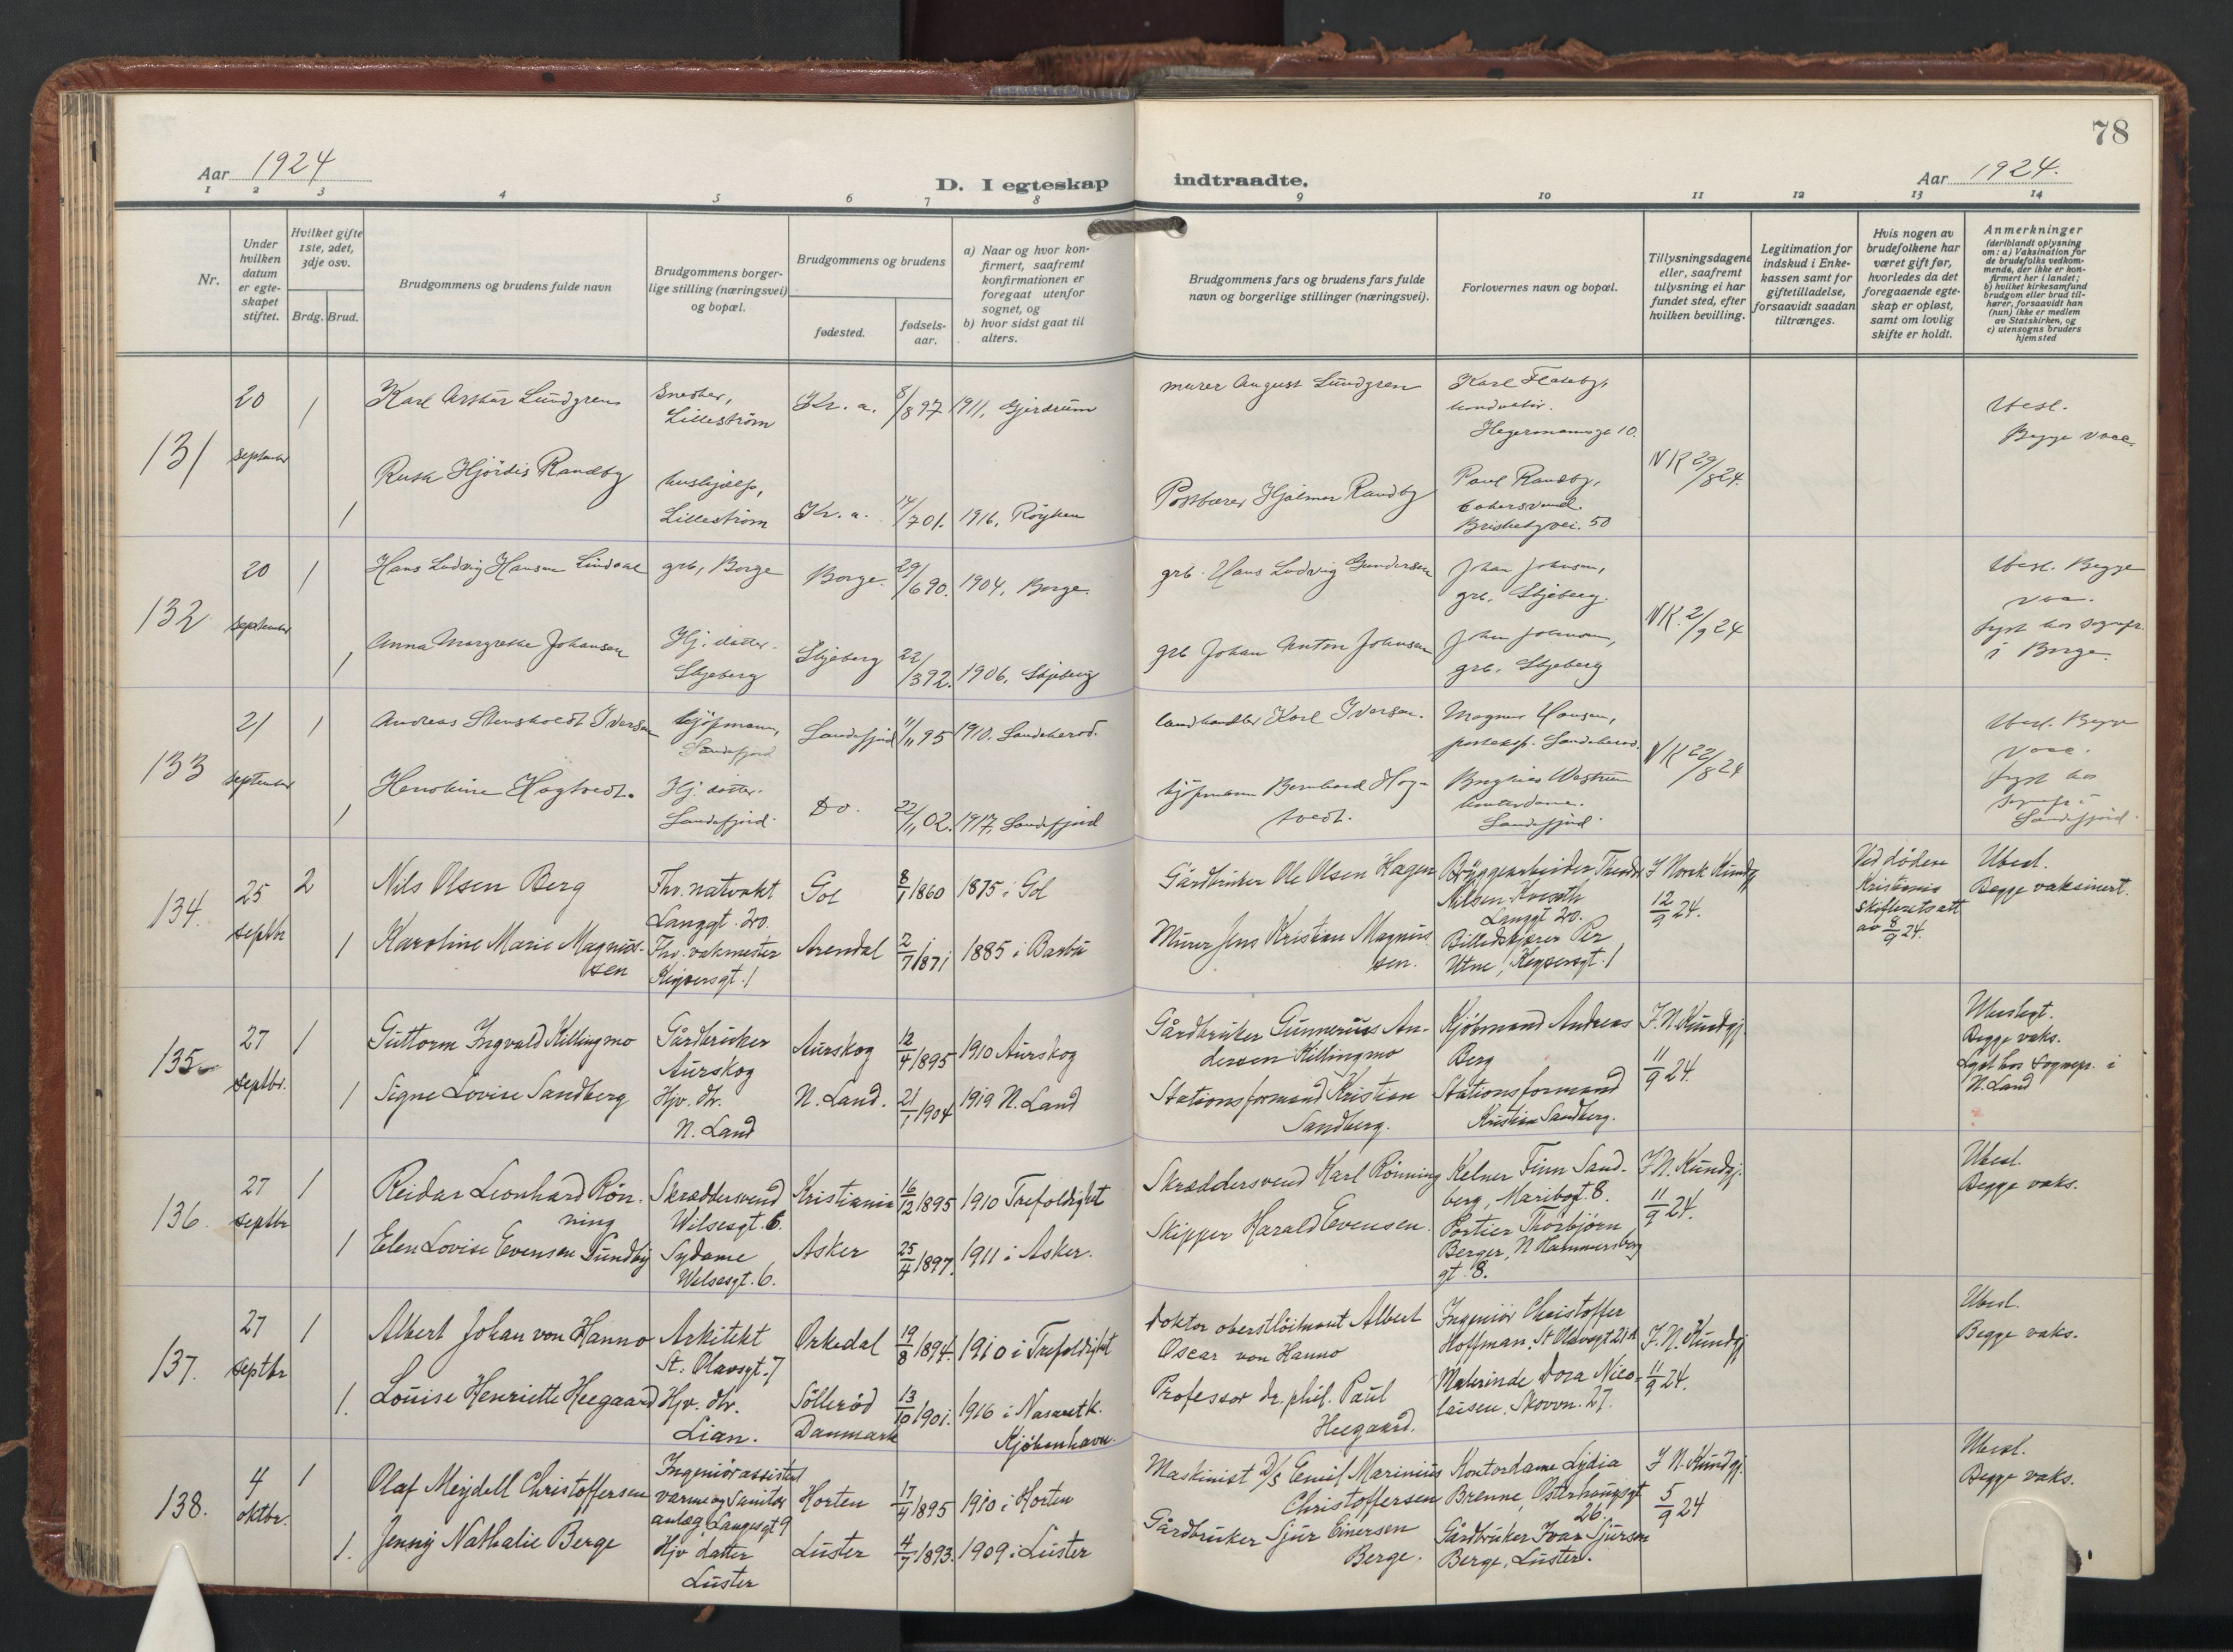 78
Aar 1924
D. I egteskap indtraadte.
Aar 1924.
1 2 3 4 5 6 7 8 9 10 11 12 13 14
Nr.
Under hvilken datum er egte-skapet stiftet.
Hvilket gifte 1ste, 2det, 3dje osv.
Brdg. Brud.
Brudgommens og brudens fulde navn
Brudgommens borger-lige stilling (næringsvei) og bopæl.
Brudgommens og brudens
fødested.
fødsels-aar.
a) Naar og hvor kon-firmert, saafremt konfirmationen er foregaat utenfor sognet, og
b) hvor sidst gaat til alters.
Brudgommens fars og brudens fars fulde navn og borgerlige stillinger (næringsvei).
Forlovernes navn og bopæl.
Tillysningsdagene eller, saafremt tillysning ei har fundet sted, efter hvilken bevilling.
Legitimation for indskud i Enke-kassen samt for giftetilladelse, forsaavidt saadan tiltrænges.
Hvis nogen av brudefolkene har været gift før, hvorledes da det foregaaende egte-skap er opløst, samt om lovlig skifte er holdt.
Anmerkninger
(deriblandt oplysning om: a) Vaksination for de brudefolks vedkom-mende, der ikke er kon-firmert her i landet;
b) hvilket kirkesamfund brudgom eller brud til-hører, forsaavidt han (hun) ikke er medlem av Statskirken, og
c) utensogns bruders hjemsted
131
20 september
1
Karl Arthur Lundgren
Snekker,
Lillestrøm
Kr. a.
8/8 97
1911, Gjerdrum
murer August Lundgren
Karl Flateby,
konduktør.
Hegermannsgt 10.
NK 29/8 24.
Ubesl.
Begge vacc.
1
Ruth Hjördis Randby
hushjælp,
Lillestrøm
Kr. a.
14/7 01.
1916, Røyken
Postbærer Hjalmar Randby
Paul Randby,
Briskebyvei. 50
132
20 september
1
Hans Ludvig Hansen Lindahl
grb, Borge
Borge.
29/6 90.
1904, Borge.
grb. Hans Ludvig Gundersen
Johan Johansen,
grb. Skjeberg.
NK. 2/9 24
Ubesl. Begge
vac.
lyst hos sognepr.
i Borge.
1
Anna Margrethe Johansen
Hj. datter.
Skjeberg
Skjeberg
22/3 92.
1906, Skjeberg
grb Johan Anton Johansen
Johan Johansen,
grb. Skjeberg
133
21 september
1
Andreas Stensholdt Iversen
kjøpmann,
Sandefjord
Sandefjord
11/11 95
1910. Sandeherad.
landhandler Karl Iversen.
Magnus Hansen,
posteksp. Sandeherad.
NK 22/8 24
Ubesl. Begge
vacc.
lyst hos
sognepr i
Sandefjord.
1
Henrikine Hogtvedt.
Hj. datter.
Sandefjord.
Do.
22/11 02.
1917, Sandefjord
kjøpmann Bernhard Hog-
tvedt.
kontordame.
Sandefjord.
134.
25 septbr
2
Nils Olsen Berg
Fhv. natvakt
Langgt. 20.
Gol
8/1 1860
1875 i Gol
Gårdbruker Ole Olsen Hagen
Bryggearbeider Theodor
Nilsen Kveseth
Langgt 20.
I Norsk Kundgj
12/9 24.
Ved døden
Kristiania
skifteretsatt
av 8/9 24.
Ubesl.
Begge vaksinert.
1
Karoline Marie Magnus-
sen
Fhv. vakmester
Keysersgt. 1
Arendal
2/7 1871
1885 i Barbu
Murer Jens Kristian Magnus
sen.
Billedskjærer Per
Utne, Keysersgt. 1
135
27 septbr.
1
Guttorm Ingvald Killingmo
Gårdbruker
Aurskog
Aurskog
12/4 1895
1910 Aurskog
Gårdbruker Gunnerius An-
dersen Killingmo
Kjøbmand Andreas
Berg
I. N. Kundgj.
11/9 24.
Ubeslegt.
Begge vaks.
Lyst hos Sognepr. i
N. Land
1
Signe Lovise Sandberg
Hjv. dtr.
N. Land
N. Land.
21/1 1904
1919 N. Land
Stationsformand Kristian
Sandberg.
Stationsformand
Kristian Sandberg.
136.
27 septbr
1
Reidar Leonhard Røn-
ning
Skræddersvend
Wilsesgt. 6.
Kristiania
16/12 1895
1910 Trefoldight
Skræddersvend Karl Rønning
Kelner Finn Sand-
berg, Maribogt. 8.
I. N. Kundgj.
11/9 24.
Ubesl.
Begge vaks.
1
Elen Lovise Evensen Sundby
Sydame
Wilsesgt. 6.
Asker
25/4 1897.
1911 i Asker.
Skipper Harald Evensen.
Portier Thorbjørn
Berger, N Hammersborg
gt. 8.
137.
27 septbr
1
Albert Johan von Hanno
Arkitekt
St. Olavsgt. 7
Orkedal
19/8 1894.
1910 i Trefoldight
Doktor oberstløitnant Albert
Oscar von Hanno
Ingeniør Christoffer
Hoffman, St Olavsgt 21A
I. N. Kundgj
11/9 24.
Ubesl.
Begge vaks.
1.
Louise Henriette Heegaard
Hjv. dtr.
Lian.
Søllerød
Danmark
13/10 1901.
1916 i Nasaretk.
Kjøbenhavn.
Professor dr. phil. Paul
Heegaard.
Malerinde Dora Nico-
laisen. Skovvn. 27.
138.
4 oktbr.
1
Olaf Meydell Christoffersen
Ingeniørassistent
varme og Sanitær
anlæg Langesgt 9
Horten
17/4 1895
1910 i Horten
Maskinist D/S Emil Marinius
Christoffersen
Kontordame Lydia
Brenne, Osterhausgt
26.
I N. Kundgj.
5/9 24
Ubesl.
Begge vaks.
1.
Jenny Nathalie Berge
Hjv datter
Luster
Luster
4/7 1893.
1909 i Luster
Gårdbruker Sjur Einersen
Berge.
Gårdbruker Ivar Sjursen
Berge, Luster.